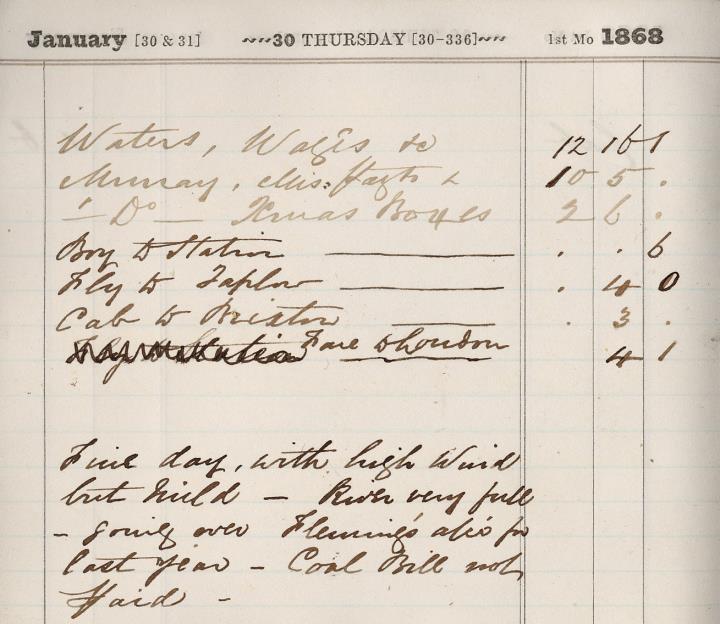 January [30 & 31] 30 THURSDAY [30-336] 1st Mo 1868
Waters, Wages &c 12 16 1
Murray, Mis: 10 5 .
" Do — Xmas Boxes 2 6 .
Boy to Station . . 6
Fly to Taplow . 4 0
Cab to Brixton . 3 .
Fare to London 4 1
Fine day, with high Wind
but Mild — River very full
- going over Fleming's a/c's for
last year - Coal Bill not
Paid -